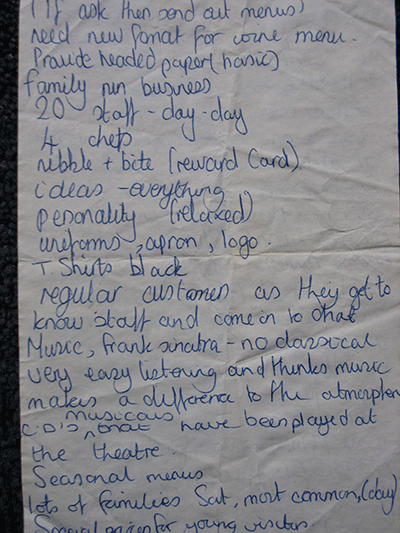 (If ask then send out menus)
need new fomat for wine menu.
Provide headed paper (basic)
family run business
20 staff - day - day
4 chefs
nibble + bite (reward card)
ideas - everything
personality (relaxed)
uniforms, apron, logo.
T Shirts black
regular customers as they get to
know staff and come in to chat
Music, frank sinatra - no classical
very easy listening and thinks music
makes a difference to the atmospher
musicals
C.D'S that have been played at
the theatre.
Seasonal menus
lots of families Sat, most common, (day)
Special prices for young visitors.